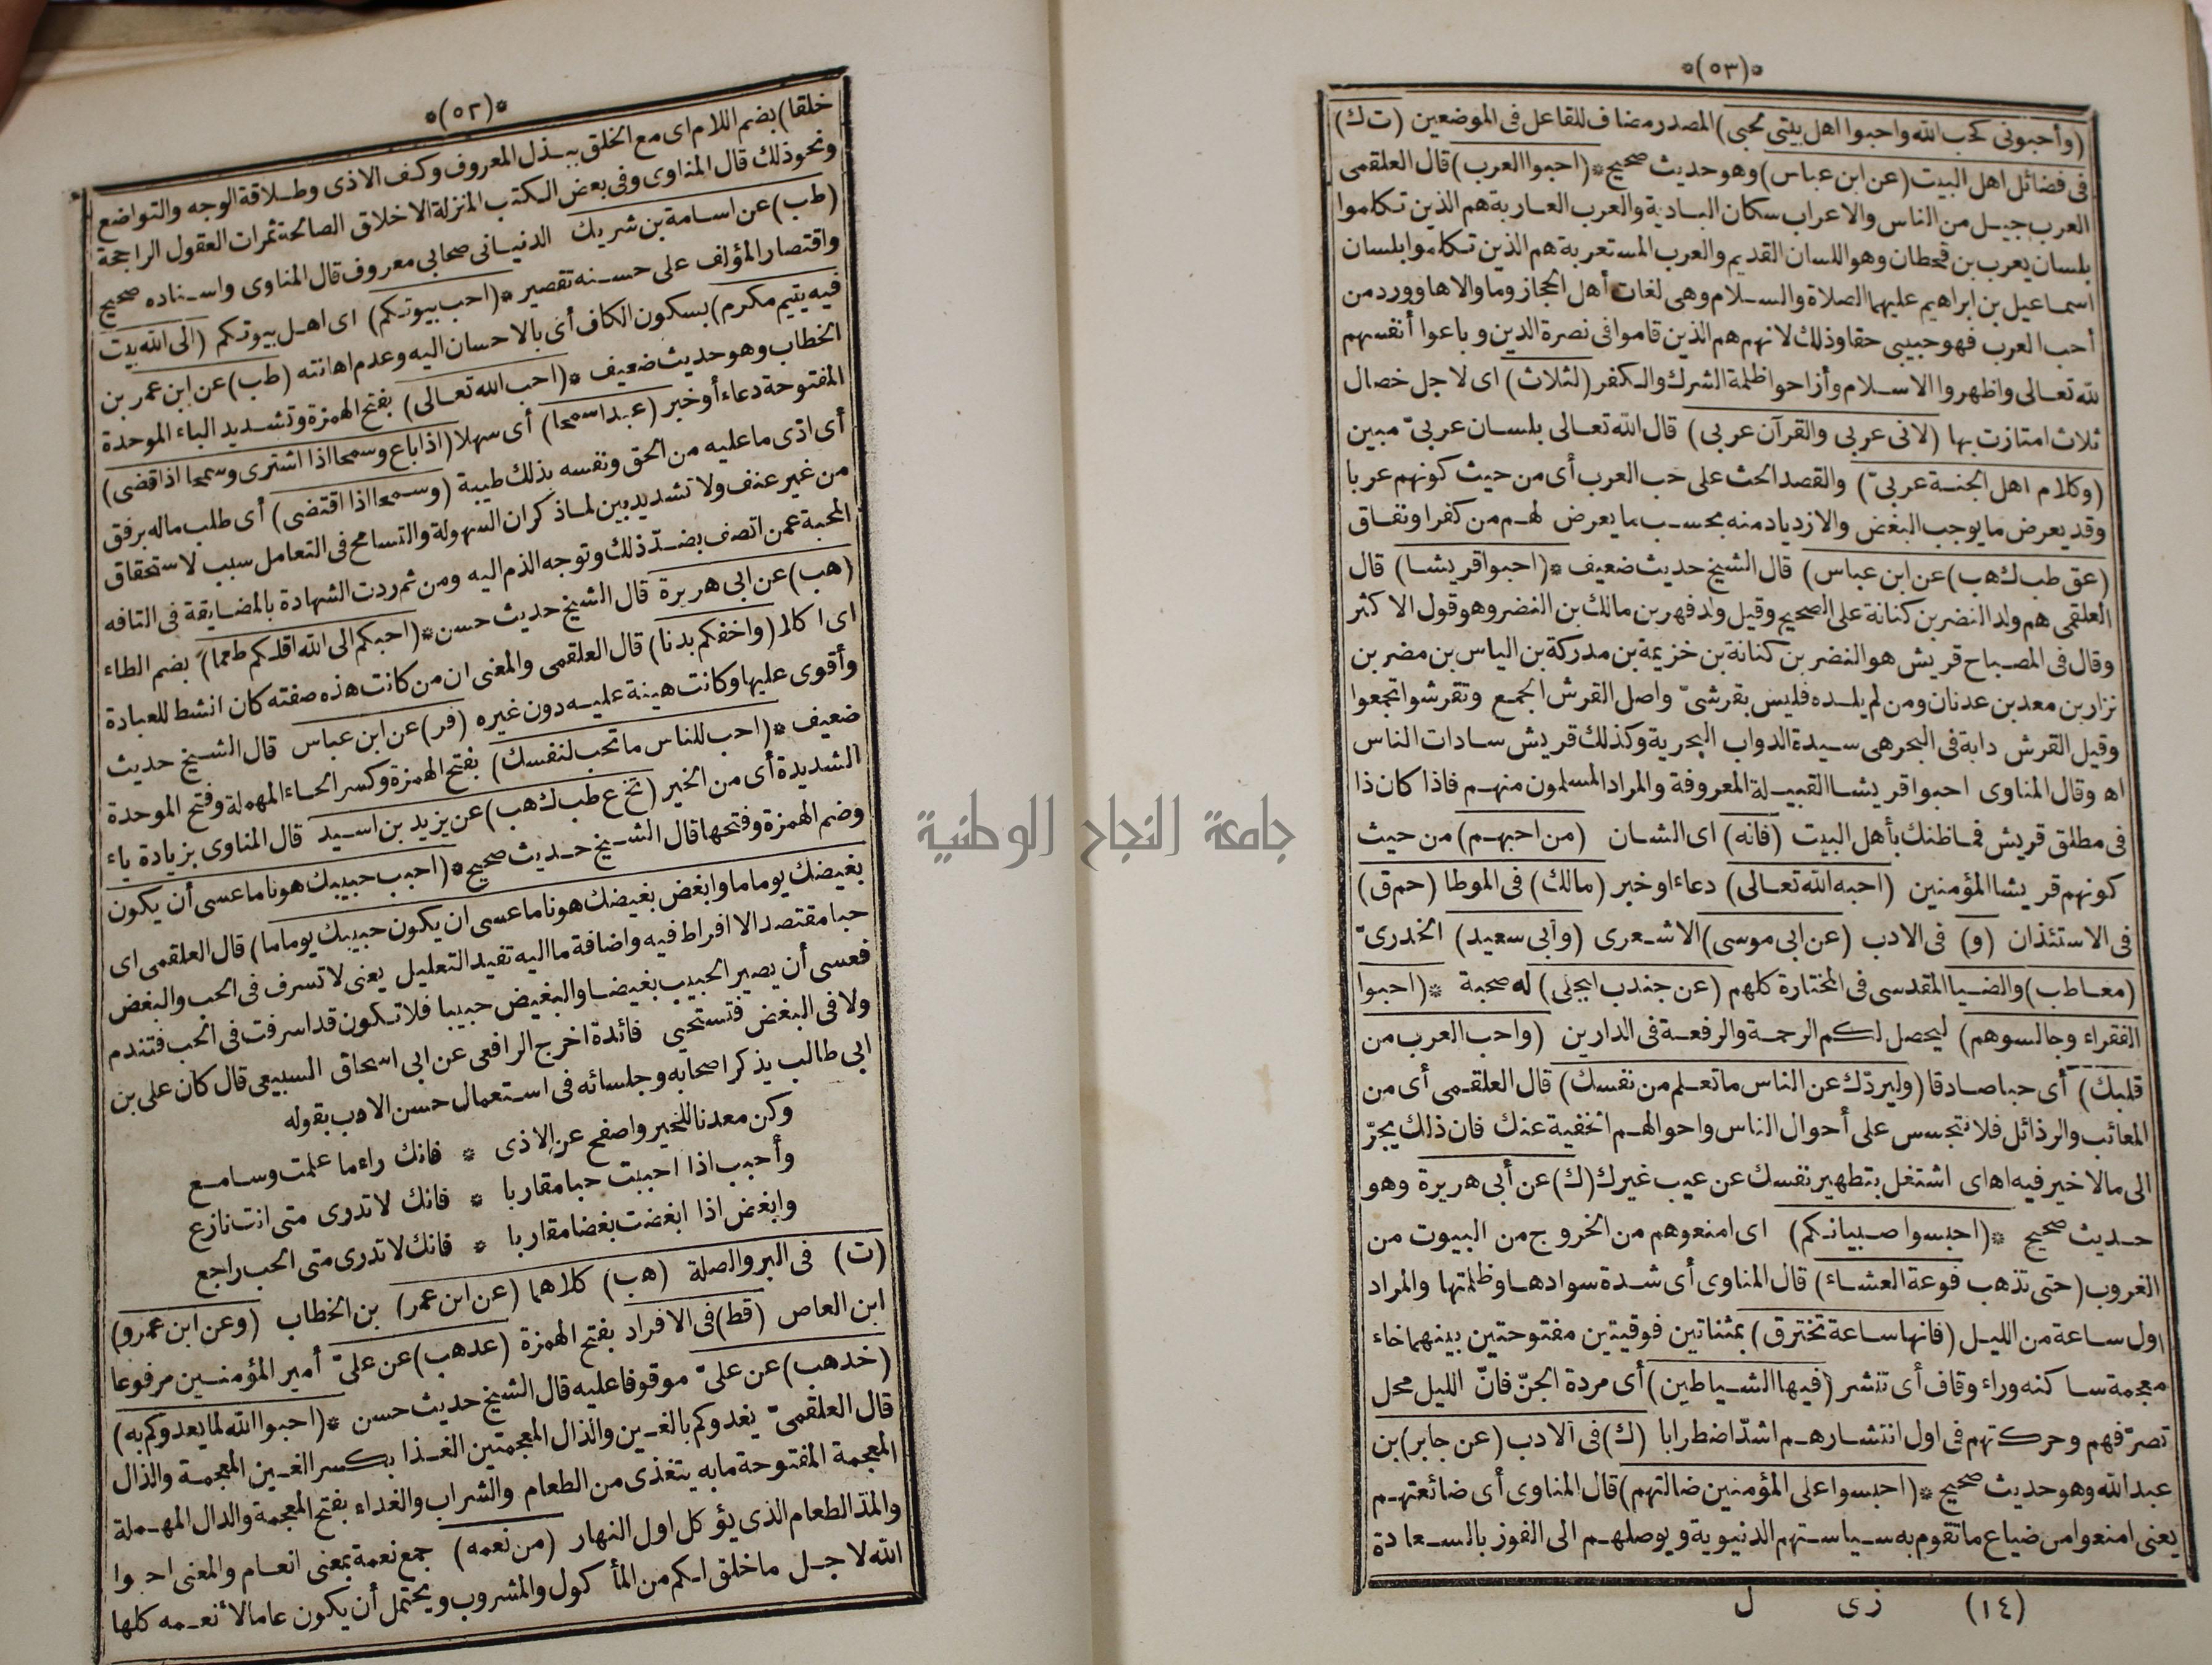 *(٥٢)*
خلقا) بضم اللام اى مع الخلق ببذل المعروف وكف الاذى وطلاقة الوجه والتواضع
ونحو ذلك قال المناوى وفى بعض الكتب المنزلة الاخلاق الصالحة ثمرات العقول الراجحة
(طب) عن اسامة بن شريك الدنيانى صحابى معروف قال المناوى واسناده صحيح
واقتصار المؤلف على حسنه تقصير *(احب بيوتكم) اى اهل بيوتكم (الى الله بيت
فيه يتيم مكرم) بسكون الكاف أى بالاحسان اليه وعدم اهانته (طب) عن ابن عمر بن
الخطاب وهو حديث ضعيف *(احب الله تعالى) بفتح الهمزة وتشديد الباء الموحدة
المفتوحة دعاء أو خبر (عبدا سمحا) أى سهلا (اذا باع وسمحا اذا اشترى وسمحا اذا قضى)
أى ادّى ما عليه من الحق ونفسه بذلك طيبة (وسمحا اذا اقتضى) أى طلب ماله برفق
من غير عنف ولا تشديد بين لما ذكر ان السهولة والتسامح فى التعامل سبب لاستحقاق
المحبة عمن اتصف بضدّ ذلك وتوجه الذم اليه ومن ثم ردت الشهادة بالمضايقة فى التافه
(هب) عن ابى هريرة قال الشيخ حديث حسن *(احبكم الى الله اقلكم طعما) بضم الطاء
اى اكالا (واخفكم بدنا) قال العلقمى والمعنى ان من كانت هذه صفته كان انشط للعبادة
وأقوى عليها وكانت هينة عليه دون غيره (فر) عن ابن عباس قال الشيخ حديث
ضعيف *(احب للناس ما تحب لنفسك) بفتح الهمزة وكسر الحاء المهملة وفتح الموحدة
الشديدة أى من الخير (تخ ع طب ك هب) عن يزيد بن اسيد قال المناوى بزيادة ياء
وضم الهمزة وفتحها قال الشيخ حديث صحيح *(احبب حبيبك هونا ما عسى أن يكون
بغيضك يوما ما وابغض بغيضك هونا ما عسى ان يكون حبيبك يوما ما) قال العلقمى اى
حبا مقتصدا لا افراط فيه واضافة ما اليه تفيد التعليل يعنى لا تسرف فى الحب والبغض
فعسى أن يصير الحبيب بغيضا والبغيض حبيبا فلا تكون قد اسرفت فى الحب فتندم
ولا فى البغض فتستحيى فائدة اخرج الرافعى عن ابى اسحاق السبيعى قال كان على بن
ابى طالب يذكر اصحابه وجلسائه فى استعمال حسن الادب بقوله
وكن معدنا للخير واصفح عن الاذى * فانك راء ما علمت وسامع
وأحبب اذا احببت حبا مقاربا * فانك لا تدرى متى انت نازع
وابغض اذا ابغضت بغضا مقاربا * فانك لا تدرى متى الحب راجع
(ت) فى البر والصلة (هب) كلاهما (عن ابن عمر) بن الخطاب (وعن ابن عمرو)
ابن العاص (قط) فى الافراد بفتح الهمزة (عد هب) عن علىّ أمير المؤمنين مرفوعا
(خد هب) عن علىّ موقوفا عليه قال الشيخ حديث حسن *(احبوا الله لما يغدوكم به)
قال العلقمىّ يغدوكم بالغين والذال المعجمتين الغذا بكسر الغين المعجمة والذال
المعجمة المفتوحة ما به يتغذى من الطعام والشراب والغداء بفتح المعجمة والدال المهملة
والمدّ الطعام الذى يؤكل اول النهار (من نعمه) جمع نعمة بمعنى انعام والمعنى احبوا
الله لاجل ما خلق لكم من المأكول والمشروب ويحتمل أن يكون عاما لأنعمه كلها
*(٥٣)*
(وأحبونى لحب الله واحبوا اهل بيتى لحبى) المصدر مضاف للفاعل فى الموضعين (ت ك)
فى فضائل اهل البيت (عن ابن عباس) وهو حديث صحيح *(احبوا العرب) قال العلقمى
العرب جيل من الناس والاعراب سكان البادية والعرب العاربة هم الذين تكلموا
بلسان يعرب بن قحطان وهو اللسان القديم والعرب المستعربة هم الذين تكلموا بلسان
اسماعيل بن ابراهيم عليهما الصلاة والسلام وهى لغات أهل الحجاز وما والاها وورد من
أحب العرب فهو حبيبى حقا وذلك لانهم هم الذين قاموا فى نصرة الدين وباعوا أنفسهم
لله تعالى واظهروا الاسلام وأزاحوا ظلمة الشرك والكفر (لثلاث) اى لاجل خصال
ثلاث امتازت بها (لانى عربى والقرآن عربى) قال الله تعالى بلسان عربىّ مبين
(وكلام اهل الجنة عربىّ) والقصد الحث على حب العرب أى من حيث كونهم عربا
وقد يعرض ما يوجب البغض والازدياد منه بحسب ما يعرض لهم من كفر او نفاق
(عق طب ك هب) عن ابن عباس) قال الشيخ حديث ضعيف *(احبوا قريشا) قال
العلقمى هم ولد النضر بن كنانة على الصحيح وقيل ولد فهر بن مالك بن النضر وهو قول الاكثر
وقال فى المصباح قريش هو النضر بن كنانة بن خزيمة بن مدركة بن الياس بن مضر بن
نزار بن معد بن عدنان ومن لم يلده فليس بقرشىّ واصل القرش الجمع وتقرشوا تجمعوا
وقيل القرش دابة فى البحر هى سيدة الدواب البحرية وكذلك قريش سادات الناس
اه وقال المناوى احبوا قريشا القبيلة المعروفة والمراد المسلمون منهم فاذا كان ذا
فى مطلق قريش فما ظنك بأهل البيت (فانه) اى الشان (من احبهم) من حيث
كونهم قريشا المؤمنين (احبه الله تعالى) دعاء او خبر (مالك) فى الموطا (حم ق)
فى الاستئذان (و) فى الادب (عن ابى موسى) الاشعرى (وأبى سعيد) الخدرىّ
(معا طب) والضيا المقدسى فى المختارة كلهم (عن جندب البجلى) له صحبة *(احبوا
الفقراء وجالسوهم) ليحصل لكم الرحمة والرفعة فى الدارين (واحب العرب من
قلبك) أى حبا صادقا (وليردّك عن الناس ما تعلم من نفسك) قال العلقمى أى من
المعائب والرذائل فلا تتجسس على أحوال الناس واحوالهم الخفية عنك فان ذلك يجرّ
الى ما لا خير فيه اه اى اشتغل بتطهير نفسك عن عيب غيرك (ك) عن أبى هريرة وهو
حديث صحيح *(احبسوا صبيانكم) اى امنعوهم من الخروج من البيوت من
الغروب (حتى تذهب فوعة العشاء) قال المناوى أى شدة سوادها وظلمتها والمراد
اول ساعة من الليل (فانها ساعة تخترق) بمثناتين فوقيتين مفتوحتين بينهما خاء
معجمة ساكنه وراء وقاف أى تنتشر (فيها الشياطين) أى مردة الجنّ فانّ الليل محل
تصرّفهم وحركتهم فى اول انتشارهم اشدّ اضطرابا (ك) فى الادب (عن جابر) بن
عبد الله وهو حديث صحيح *(احبسوا على المؤمنين ضالتهم) قال المناوى أى ضائعتهم
يعنى امنعوا من ضياع ما تقوم به سياستهم الدنيوية ويوصلهم الى الفوز بالسعادة
(١٤) زى ل
جامعة النجاح الوطنية